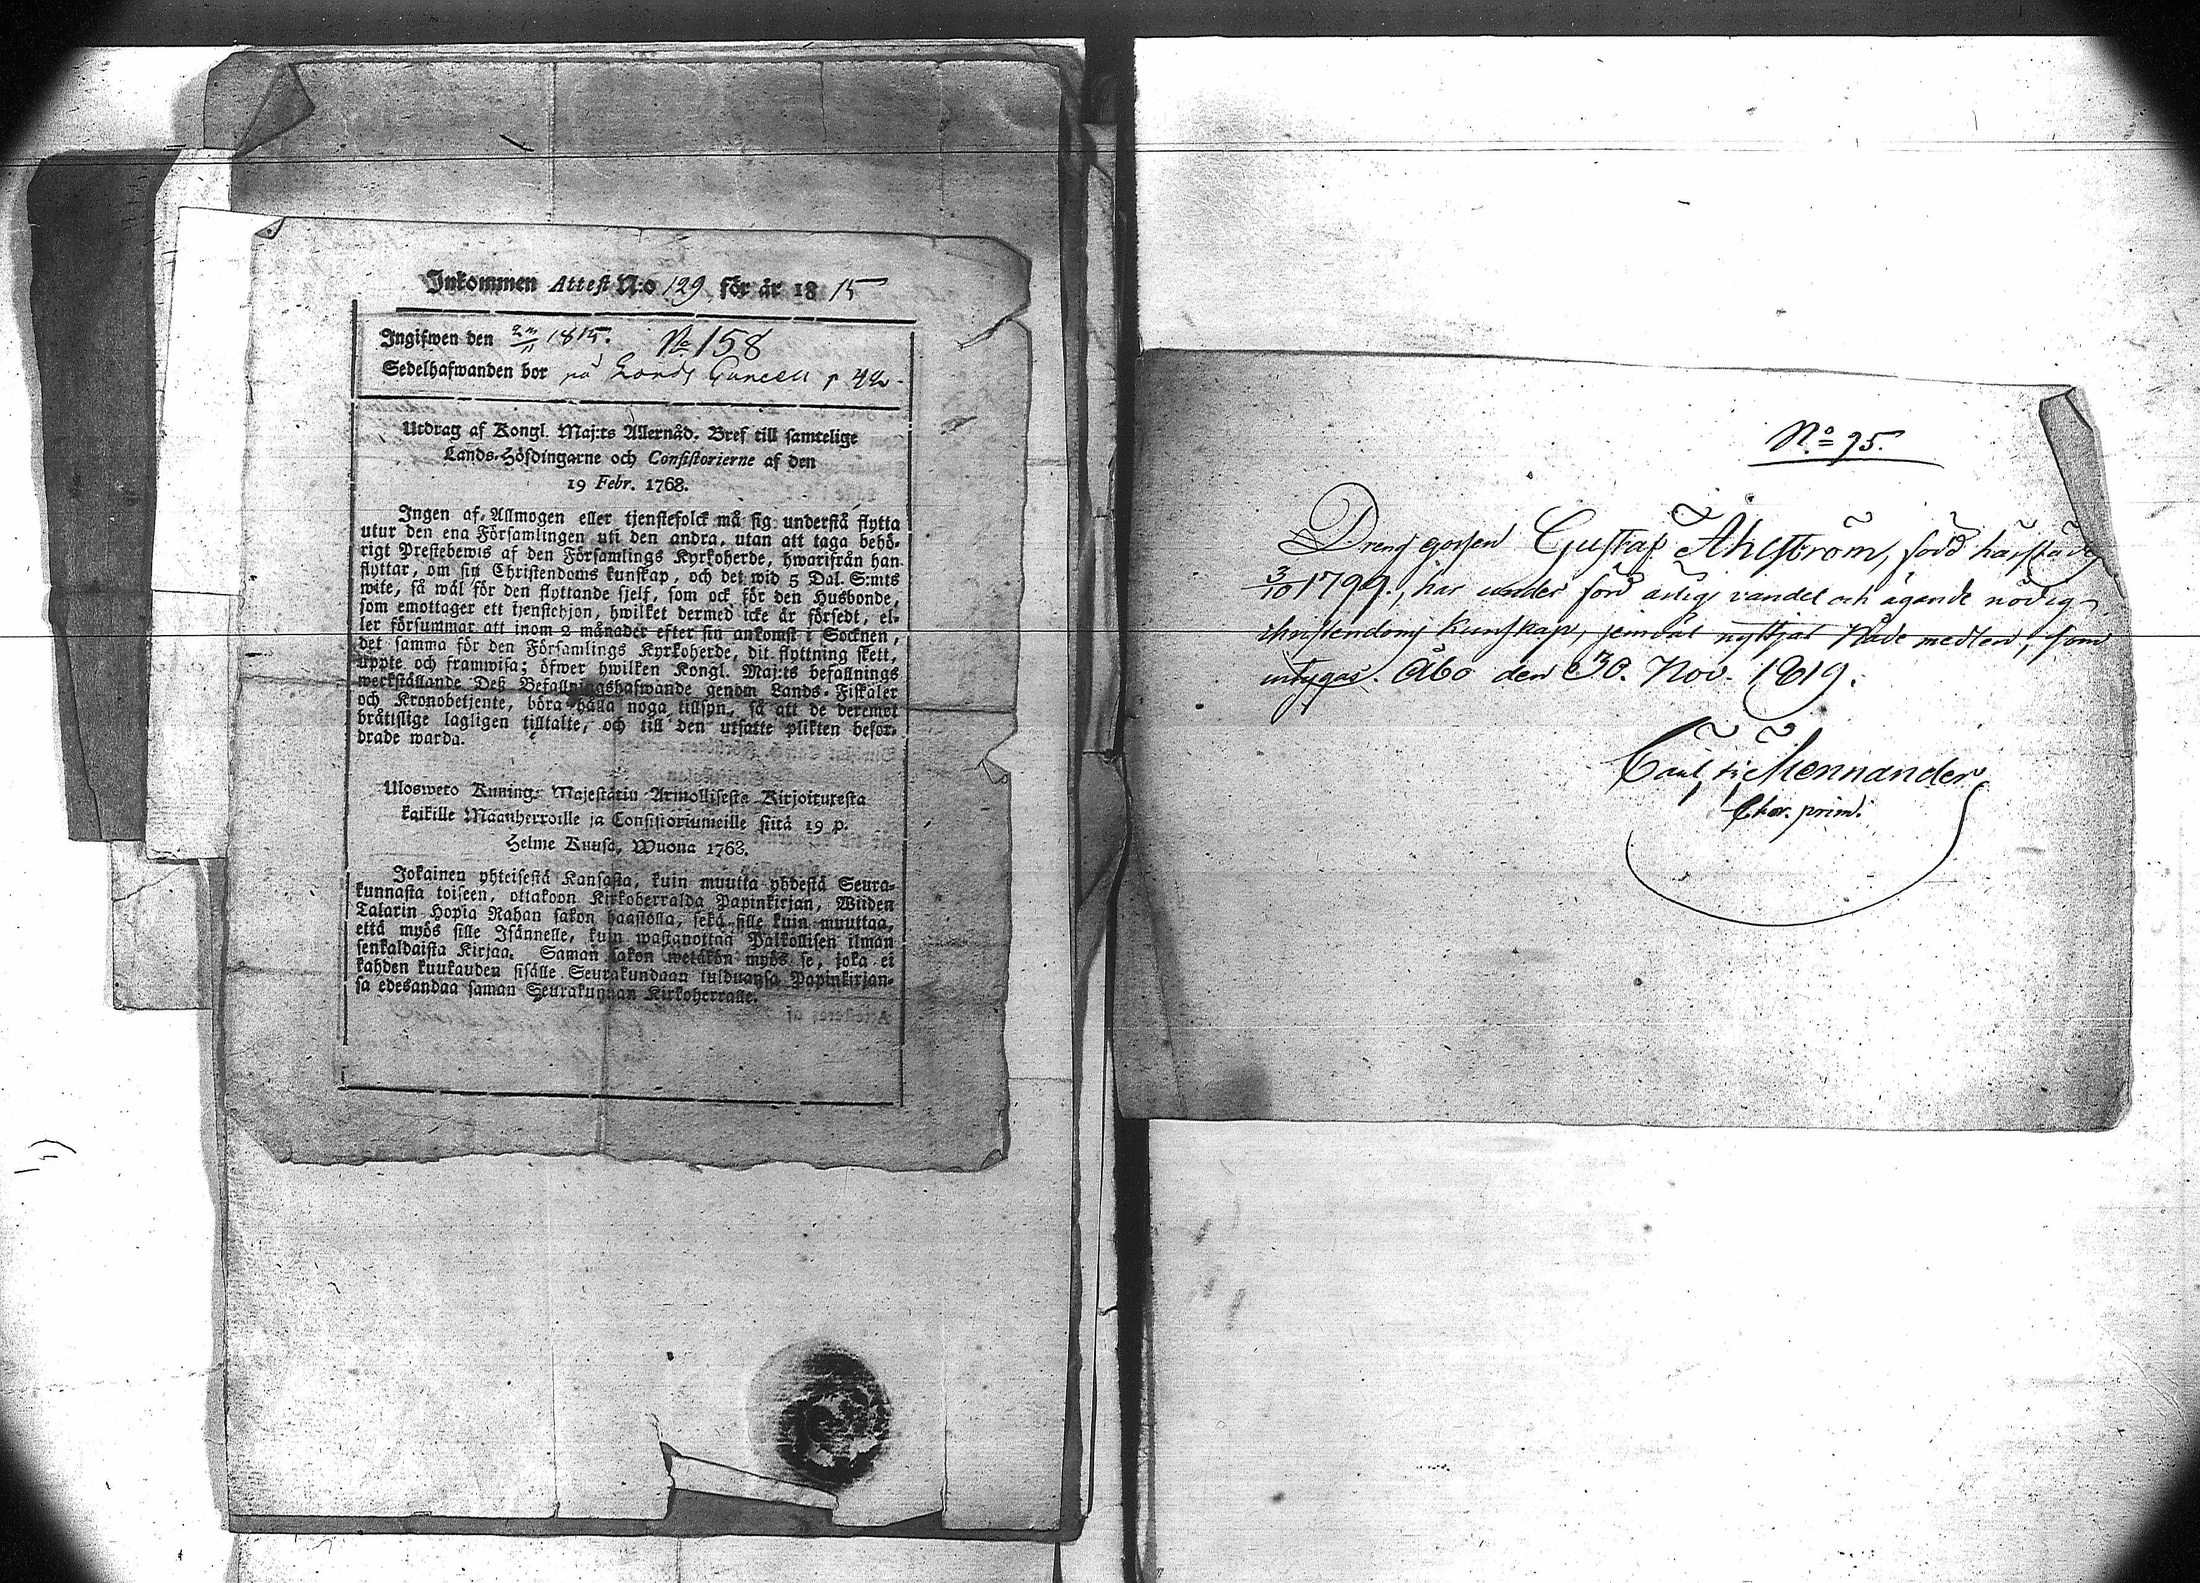 Inkommen Attest N:o 129 för år 1815
Ingifwen den 1815. No 158
Sedelhafwanden bor på p 42.
Utdrag af Kongl. Maj:ts Allernåd. Bref till samtelige
Lands-Höfdingarne och Consistorierne af den
19 Febr. 1768.
Ingen af Allmogen eller tjenstefolck må sig understå flytta
utur den ena Församlingen uti den andra, utan att taga behö-
rigt Prestebewis af den Församlings Kyrkoherde, hwarifrån han
flyttar, om sin Christendoms kunskap, och det wid 5 Dal. S:mts
wite, så wäl för den flyttande sjelf, som ock för den Husbonde,
som emottager ett tjenstehjon, hwilket dermed icke är försedt, el-
ler försummar att inom 2 månader efter sin ankomst i Socknen,
det samma för den Församlings Kyrkoherde, dit flyttning skett,
uppte och framwisa; öfwer hwilken Kongl. Maj:ts befallnings
werkställande Deß Befallningshafwande genom Lands-Fiskaler
och Kronobetjente, böra hålla noga tillsyn, så att de deremot
bråttslige lagligen tilltalte, och till den utsatte plikten befor-
drade warda.
Ulosweto Kuning: Majestätin Armollisesta Kirjoituresta
kaikille Maanherroille ja Consistoriumeille siitä 19 p.
Helme Kuusa, Wuona 1768.
Jokainen yhteisestä Kansasta, kuin muutta yhdestä Seura-
kunnasta toiseen, ottakoon Kirkoherralda Papinkirjan, Wiiden
Talarin Hopia Rahan sakon haastolla, sekä sille kuin muuttaa,
että myös sille Isännelle, kuin wastanottaa Palkollisen ilman
senkaldaista Kirjaa. Saman sakon wetäkön myös se, joka ei
kahden kuukauden sisälle Seurakundaan tulduansa Papinkirjan-
sa edesandaa saman Seurakunnan Kirkoherralle.
No 95.
Dreng gossen Gustaf Åhlström, född härstädes
3/10 1799., har under förd ärlig vandel och ägande nödig
christendoms kunskap, jemväl nyttjat Nåde medlen, som
intygas. Åbo den 30. Nov. 1819.
Mennander